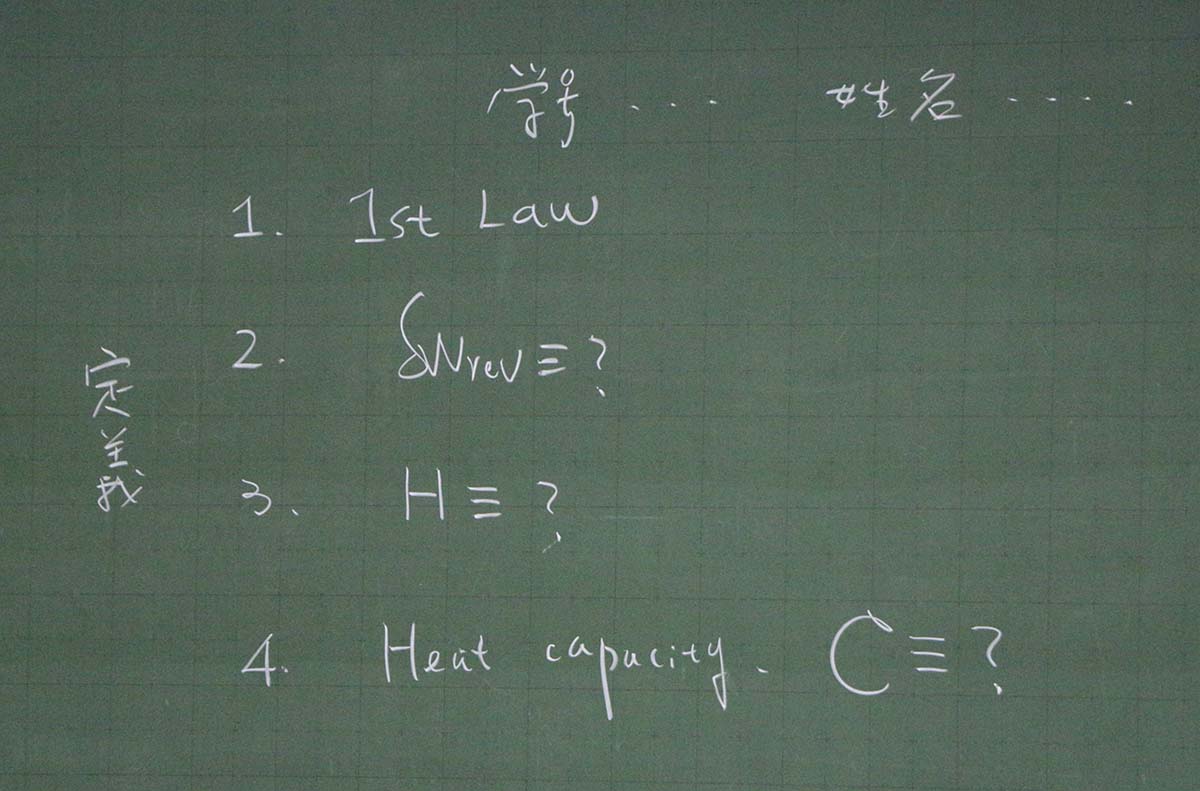 学号 ... 姓名 .....
1. 1st Law
2. δWrev ≡ ?
定義
3. H ≡ ?
4. Heat capacity. C ≡ ?